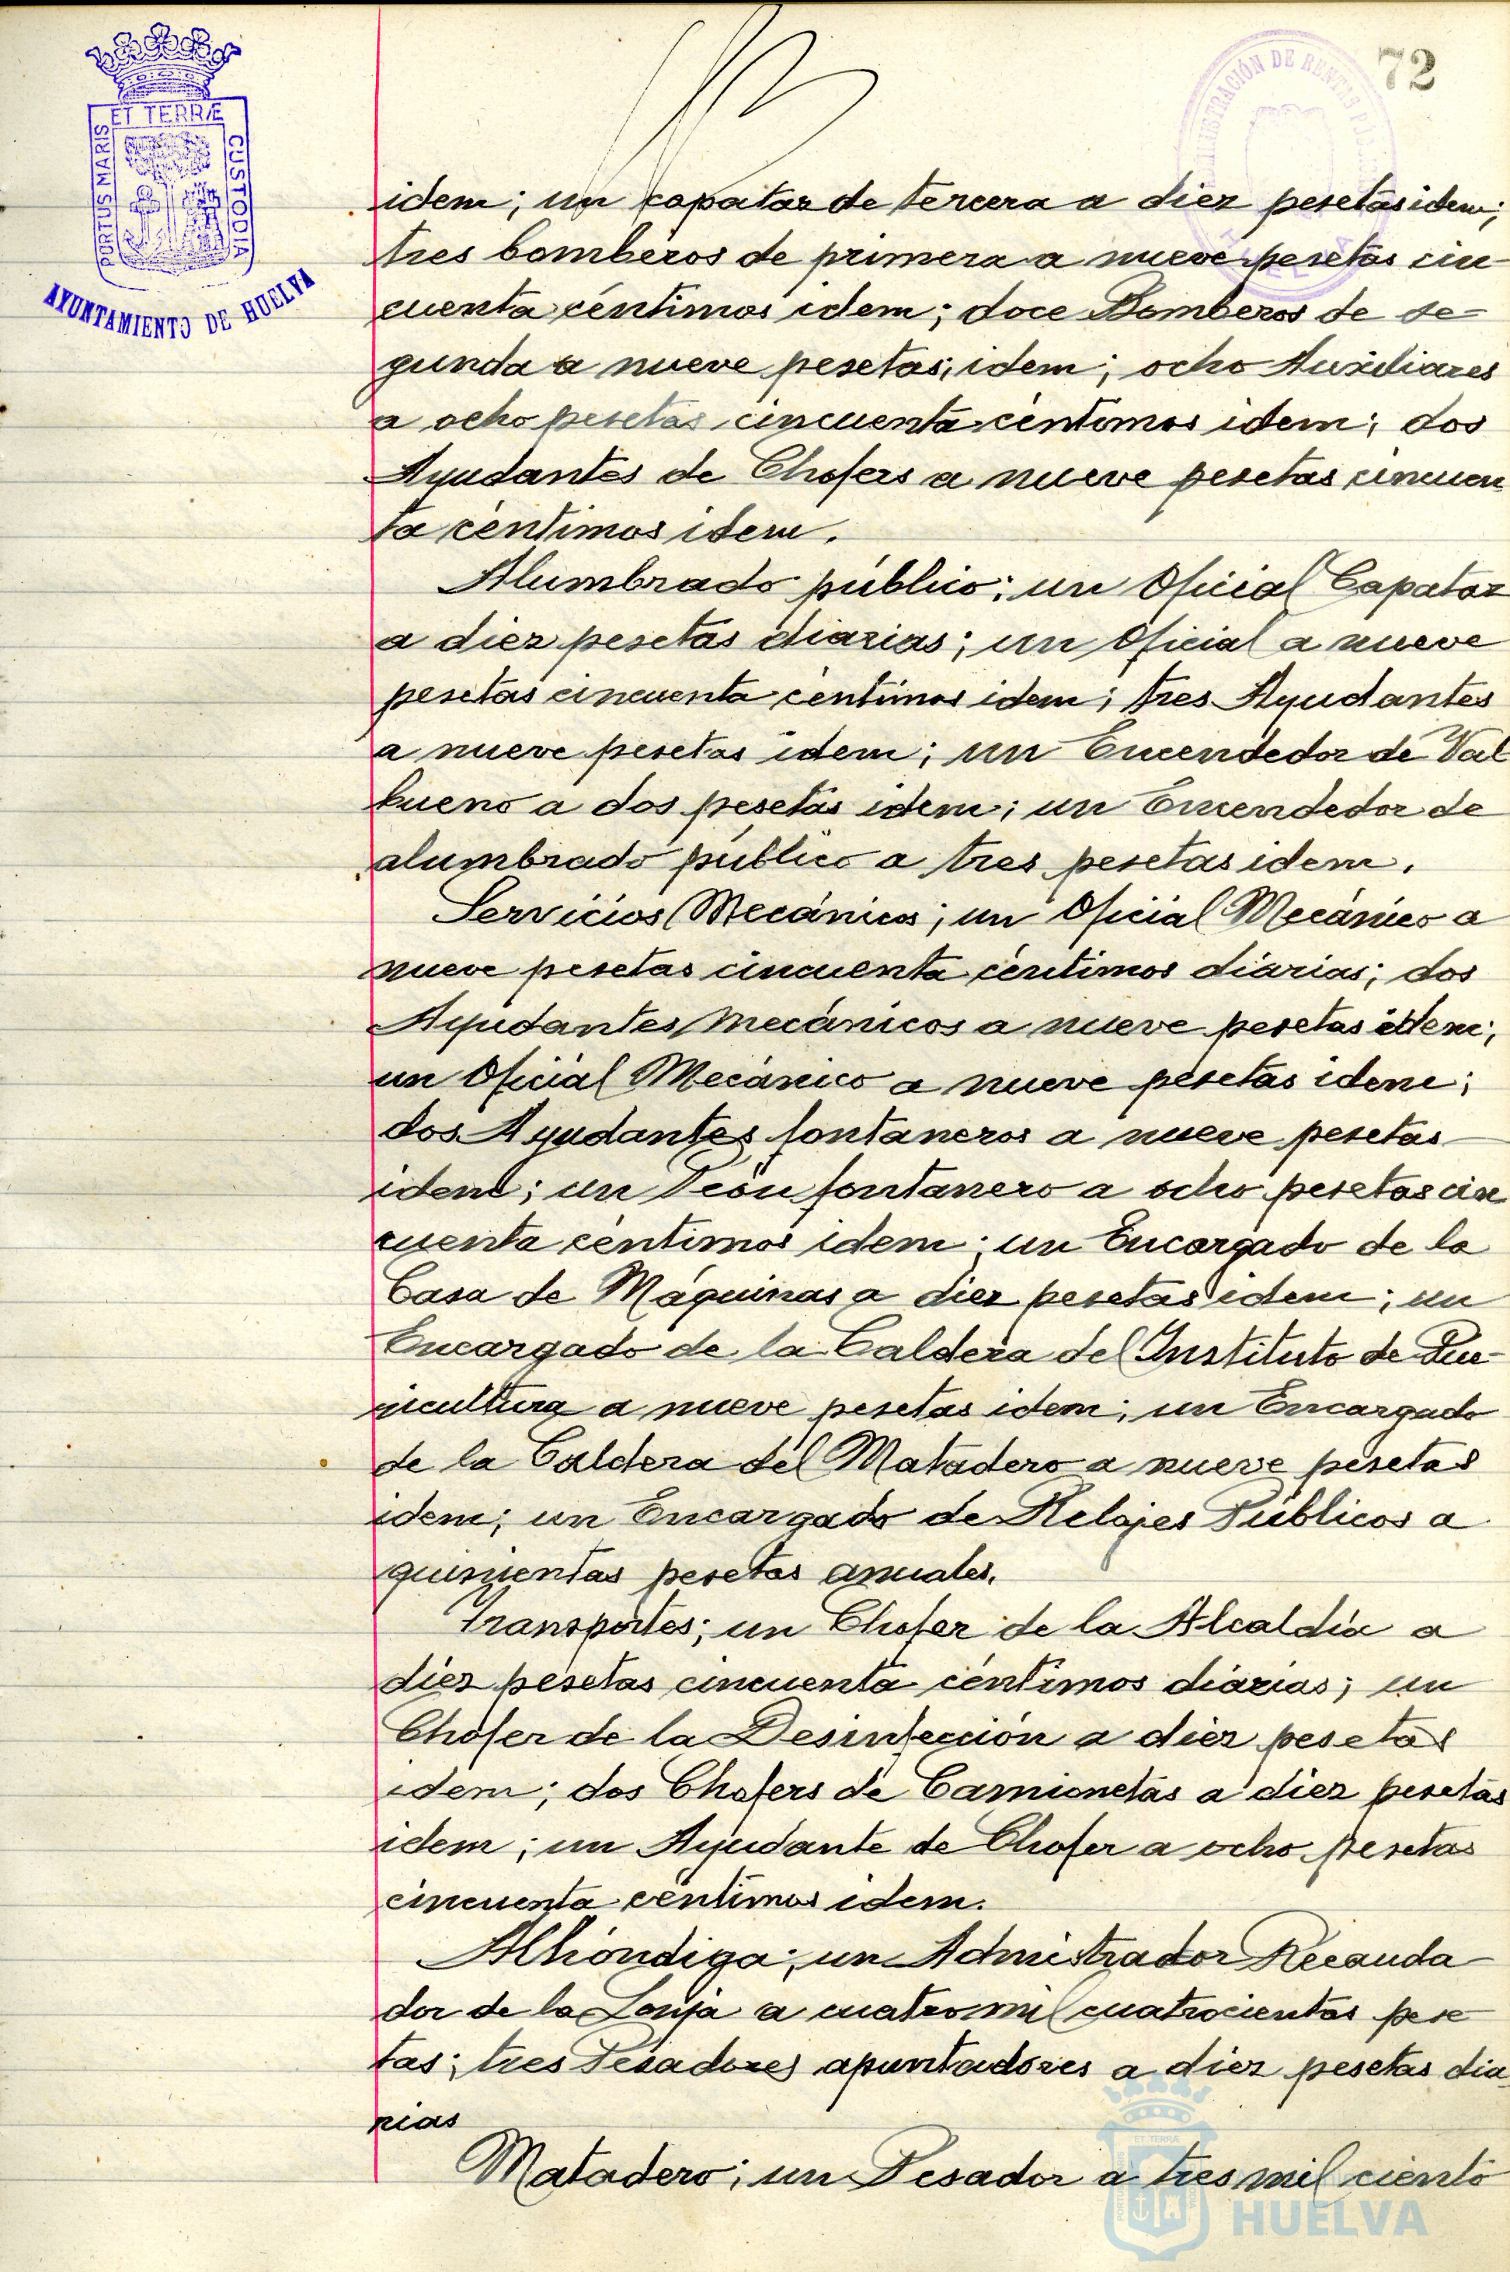 72
ET TERRÆ
PORTUS MARIS
CUSTODIA
AYUNTAMIENTO DE HUELVA
ADMINISTRACIÓN DE RENTAS
idem; un capataz de tercera a diez pesetas idem;
tres bomberos de primera a nueve pesetas cin-
cuenta céntimos idem; doce Bomberos de se-
gunda a nueve pesetas, idem; ocho Auxiliares
a ocho pesetas cincuenta céntimos idem; dos
Ayudantes de Chofers a nueve pesetas cincuen
ta céntimos idem.
Alumbrado público; un Oficial Capataz
a diez pesetas diarias; un Oficial a nueve
pesetas cincuenta céntimos idem; tres Ayudantes
a nueve pesetas idem; un Encendedor de Val
bueno a dos pesetas idem; un Encendedor de
alumbrado público a tres pesetas idem.
Servicios Mecánicos; un Oficial Mecánico a
nueve pesetas cincuenta céntimos diarias; dos
Ayudantes mecánicos a nueve pesetas idem;
un Oficial Mecánico a nueve pesetas idem;
dos Ayudantes fontaneros a nueve pesetas
idem; un Peón fontanero a ocho pesetas cin
cuenta céntimos idem; un Encargado de la
Casa de Máquinas a diez pesetas idem; un
Encargado de la Caldera del Instituto de Pue-
ricultura a nueve pesetas idem; un Encargado
de la Caldera del Matadero a nueve pesetas
idem; un Encargado de Relojes Públicos a
quinientas pesetas anuales.
Transportes; un Chofer de la Alcaldía a
diez pesetas cincuenta céntimos diarias; un
Chofer de la Desinfección a diez pesetas
idem; dos Chofers de Camionetas a diez pesetas
idem; un Ayudante de Chofer a ocho pesetas
cincuenta céntimos idem.
Alhóndiga; un Admistrador Recauda
dor de la Lonja a cuatro mil cuatrocientas pese
tas; tres Pesadores apuntadores a diez pesetas dia
rias
Matadero; un Pesador a tres mil ciento
HUELVA